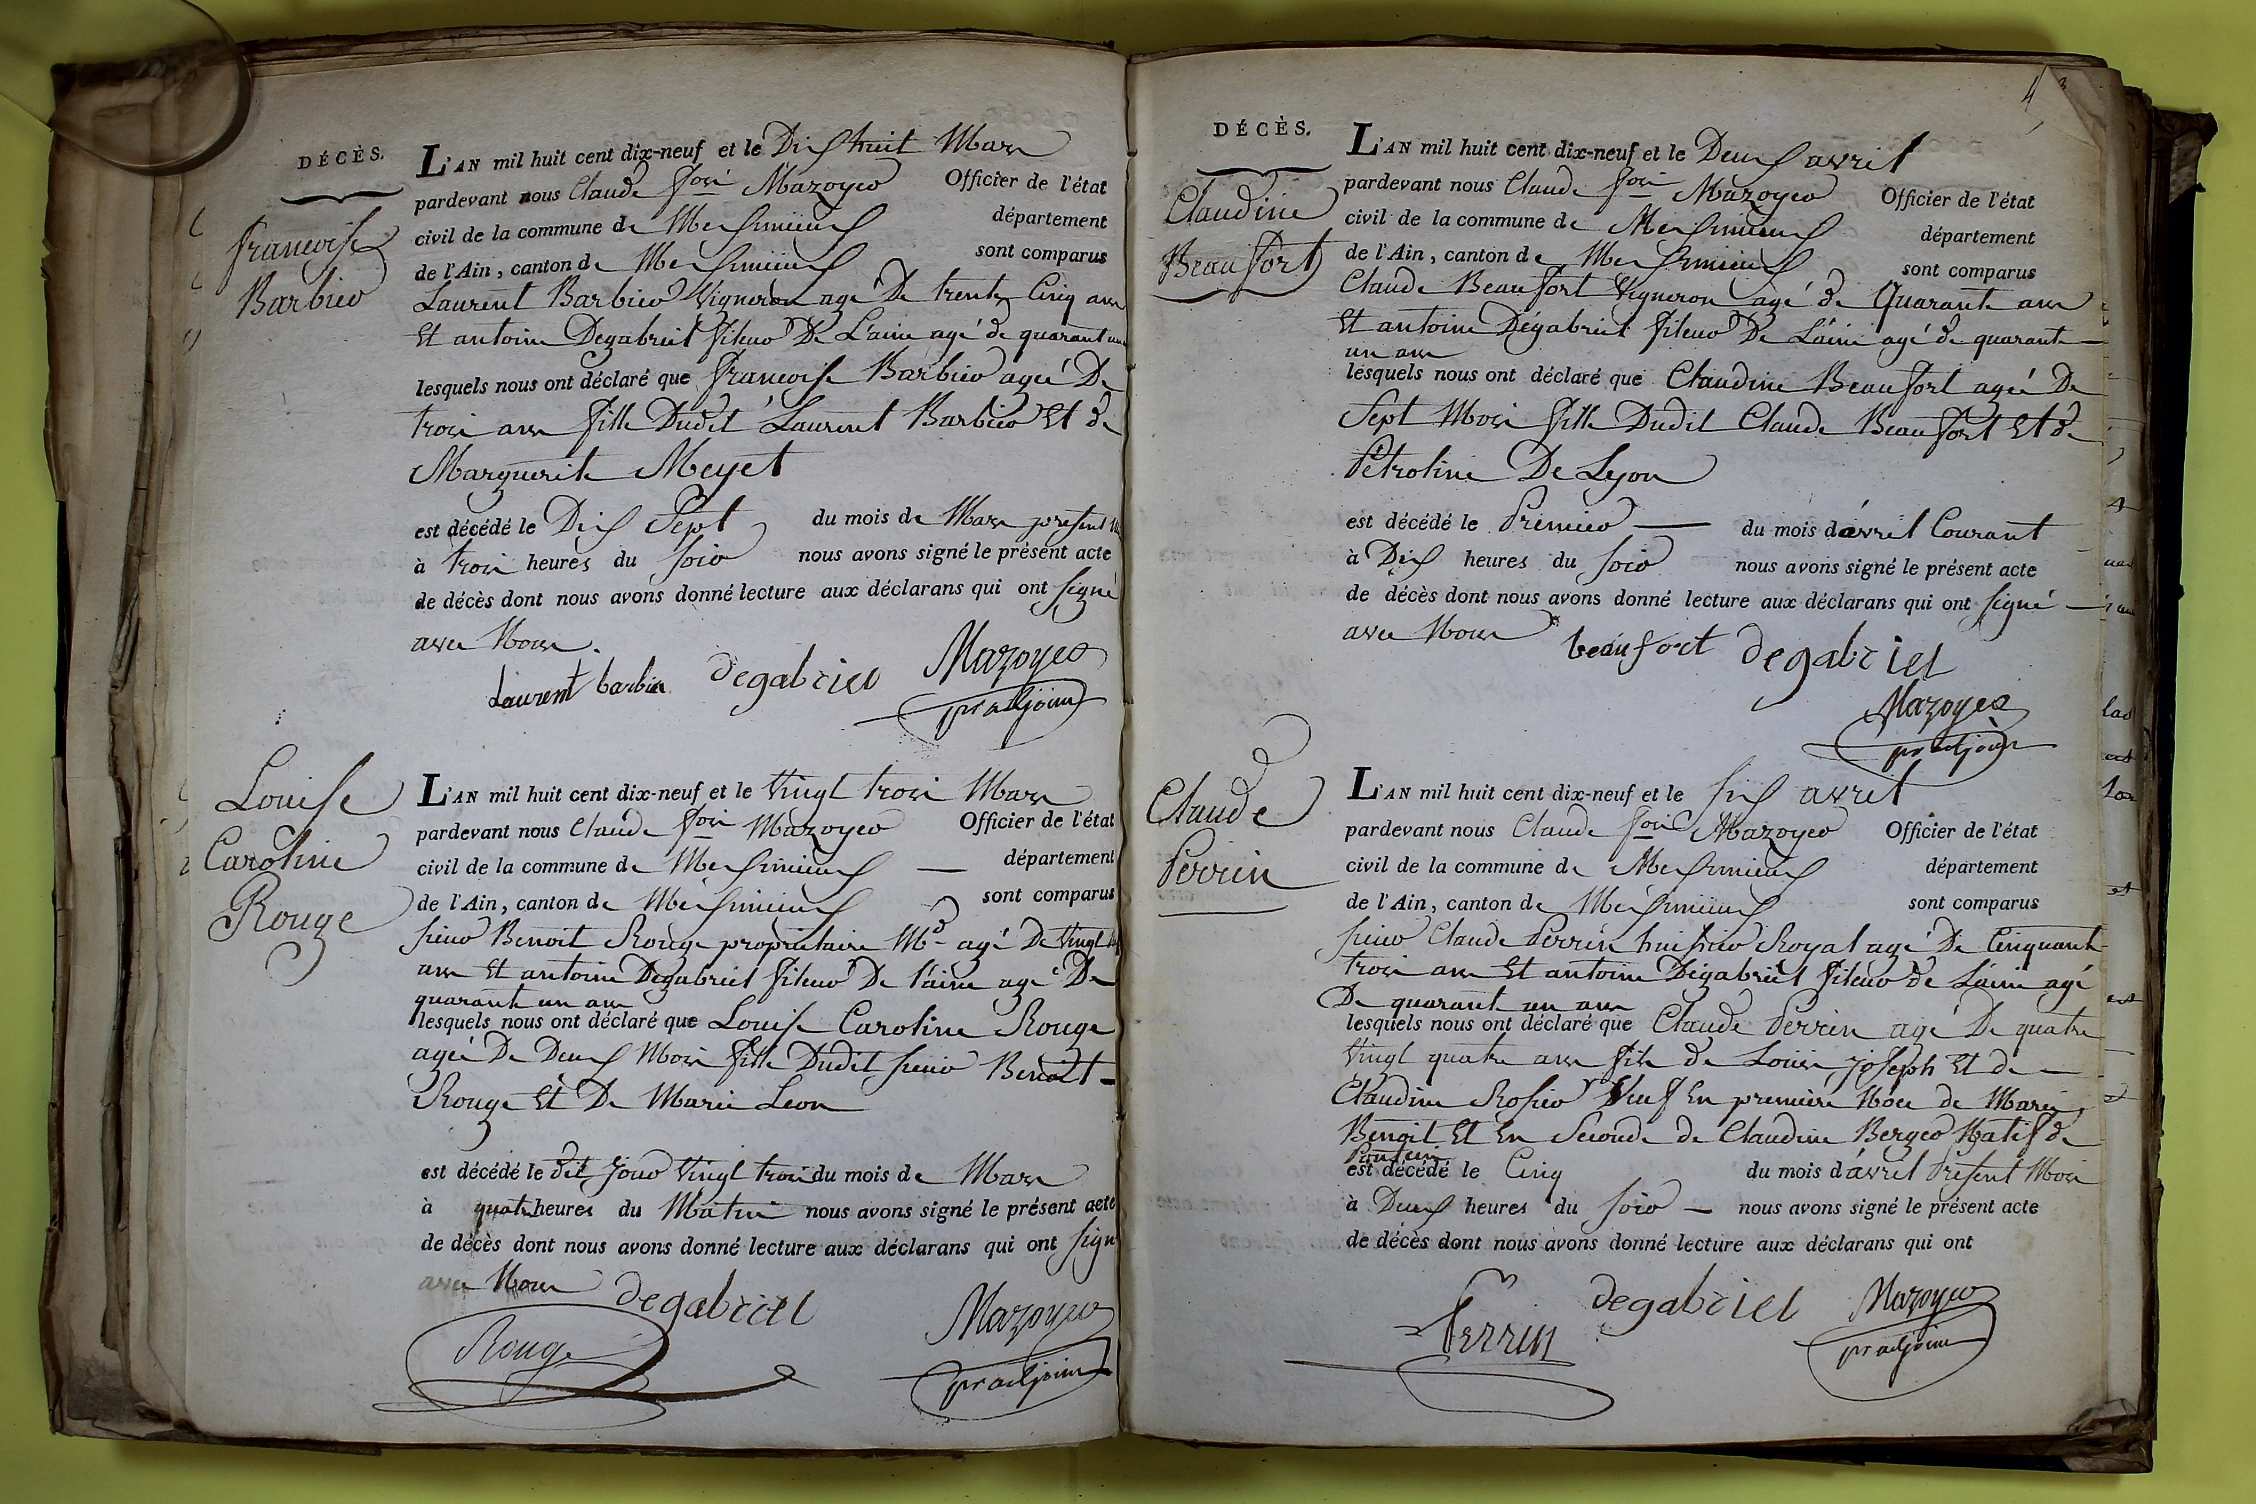 DÉCÈS.
francoise
Barbier
L'AN mil huit cent dix-neuf et le Dix huit Mars
pardevant nous Claude Mazoyer Officier de l'état
civil de la commune de Meximieux département
de l'Ain, canton de Meximieux sont comparus
Laurent Barbier Vigneron agé De trente Cinq ans
Et antoine Degabriel fileur De Laine agé de quarante un
lesquels nous ont déclaré que francoise Barbier agée De
trois ans fille Dudit Laurent Barbier Et de
Marguerite Meyet
est décédé le Dix Sept du mois de Mars présent
à trois heures du soir nous avons signé le présent acte
de décès dont nous avons donné lecture aux déclarans qui ont signé
avec Nous.
Laurent barbier degabriel Mazoyer
pr adjoint
Louise
Caroline
Rouge
L'AN mil huit cent dix-neuf et le Vingt trois Mars
pardevant nous Claude Mazoyer Officier de l'état
civil de la commune de Meximieux département
de l'Ain, canton de Meximieux sont comparus
sieur Benoit Rouge propriétaire Md agé De Vingt
ans Et antoine Degabriel fileur De laine agé De
quarante un ans
lesquels nous ont déclaré que Louise Caroline Rouge
agée De Deux Mois fille Dudit sieur Benoit
Rouge Et De Marie Leon
est décédé le dit jour Vingt trois du mois de Mars
à quatre heures du Matin nous avons signé le présent acte
de décès dont nous avons donné lecture aux déclarans qui ont signé
avec Nous degabriel
Rouge Mazoyer
pr adjoint
4
DÉCÈS.
Claudine
Beaufort
L'AN mil huit cent dix-neuf et le Deux avril
pardevant nous Claude Mazoyer Officier de l'état
civil de la commune de Meximieux département
de l'Ain, canton de Meximieux sont comparus
Claude Beaufort Vigneron agé de Quarante ans
Et antoine Dégabriel fileur De Laine agé de quarante
un ans
lesquels nous ont déclaré que Claudine Beaufort agée De
Sept Mois fille Dudit Claude Beaufort Et de
Pétroline De Lyon
est décédé le Premier du mois d'avril Courant
à Dix heures du soir nous avons signé le présent acte
de décès dont nous avons donné lecture aux déclarans qui ont signé
avec Nous
beaufort degabriel
Mazoyer
pr adjoint
Claude
Perrin
L'AN mil huit cent dix-neuf et le Six avril
pardevant nous Claude Mazoyer Officier de l'état
civil de la commune de Meximieux département
de l'Ain, canton de Meximieux sont comparus
sieur Claude Perrin huissier Royal agé De Cinquante
trois ans Et antoine Dégabriel fileur de Laine agé
De quarante un ans
lesquels nous ont déclaré que Claude Perrin agé De quatre
Vingt quatre ans fils de Louis joseph Et de
Claudine Rosier Veuf En première Noce de Marie
Benoit Et En Seconde de Claudine Berger Natif de
est décédé le Cinq du mois d'avril Présent Mois
à Deux heures du soir nous avons signé le présent acte
de décès dont nous avons donné lecture aux déclarans qui ont
Perrin degabriel Mazoyer
pr adjoint